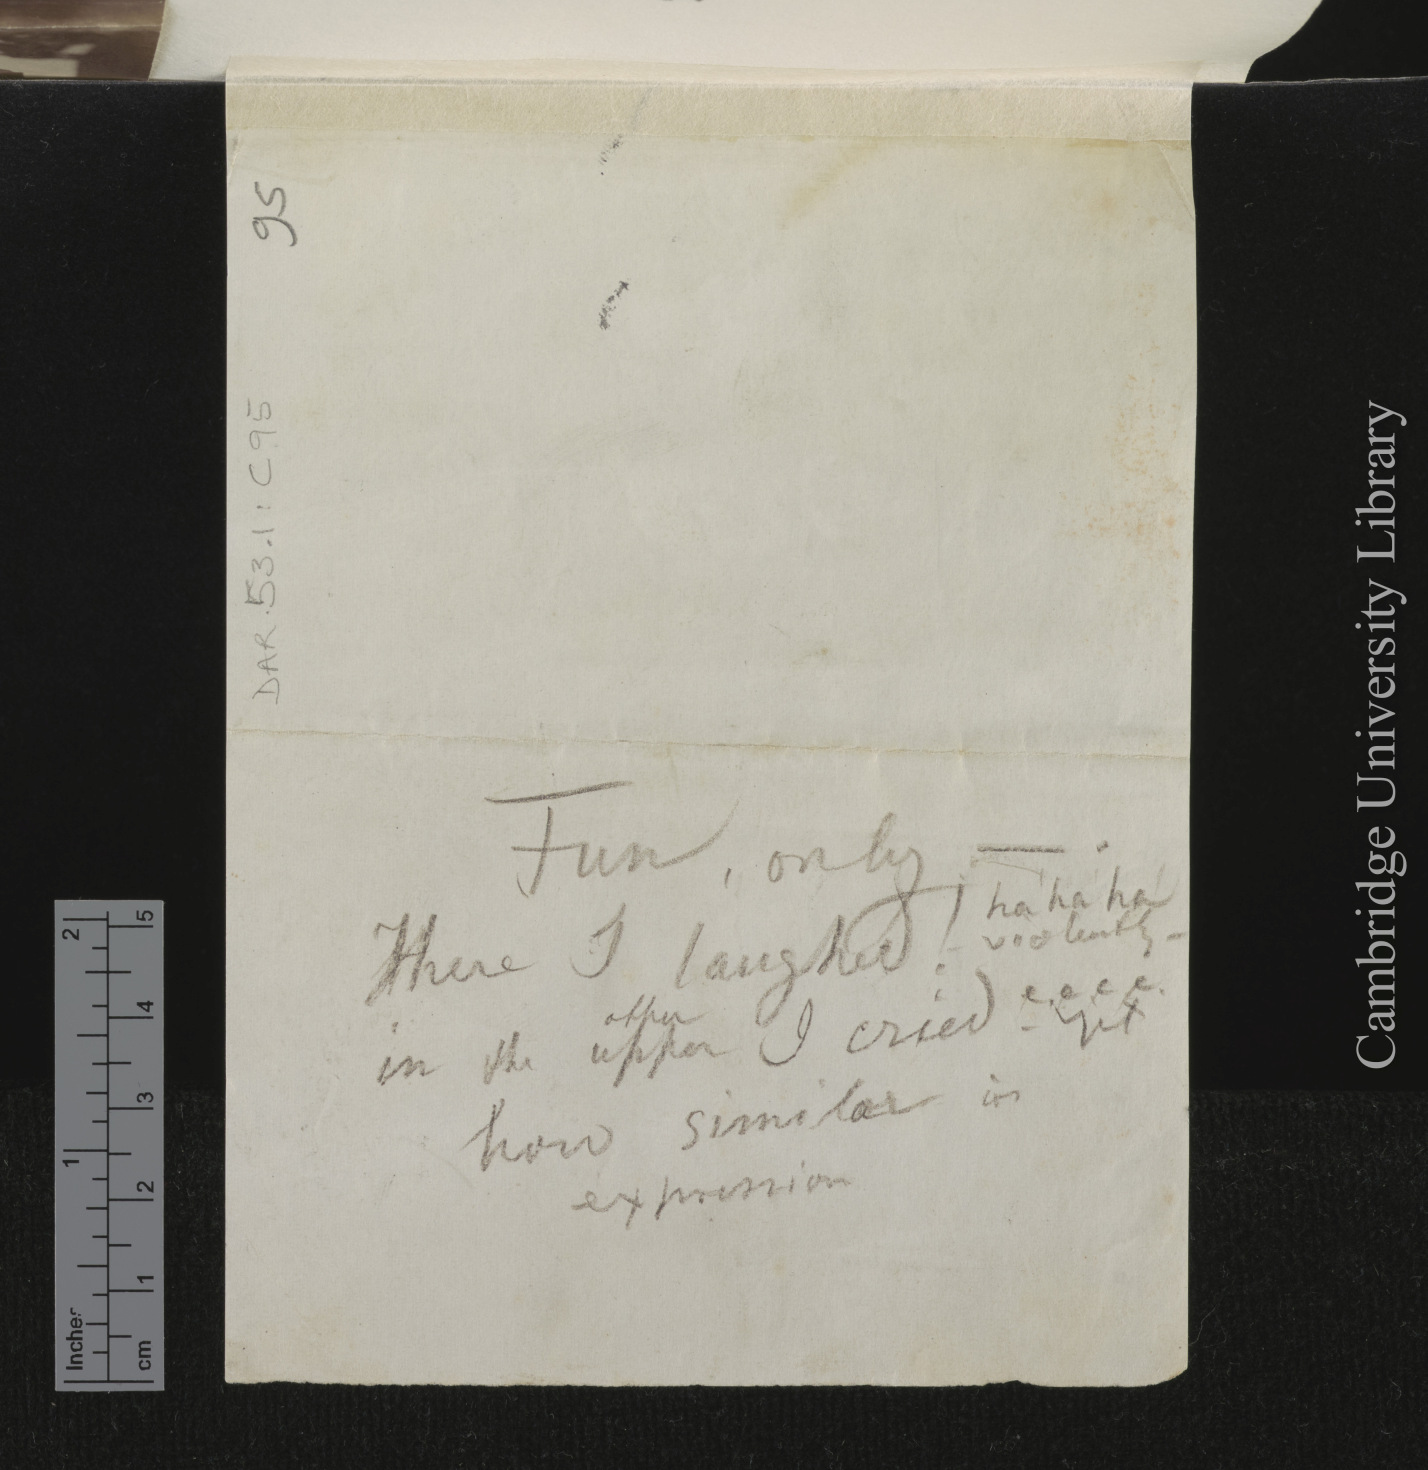 95
DAR.53.1:C95
Fun, only — .
Here I laughed! ha ha ha
violently –
in the upper other I cried e.e.e.e.
how similar in
expression
2
1
Inches
5
4
3
2
1
cm
Cambridge University Library